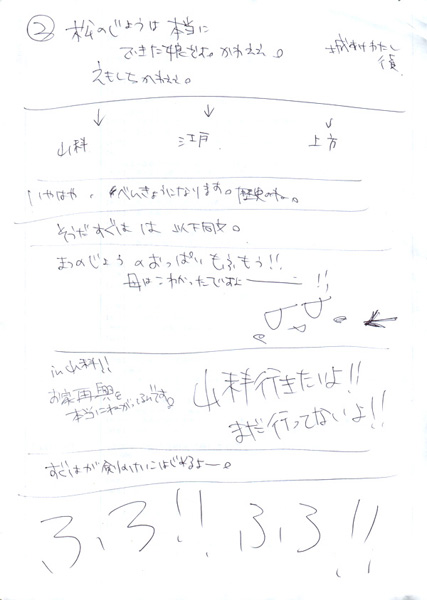 ② 松のじょうは本当に
できた娘だよ。かわええ。
えもしもかわええ。
城あけわたし
後
山科 江戸 上方
いやはや、べんきょうになります。歴史のね。
そうだすぐは は 以下同文。
まつのじょうのおっぱいもふもふ!!
母はこわかったですよーー!!
in山科!!
お家再興を
本当にねがってるです。
山科行きたいよ!!
まだ行ってないよ!!
すぐはが
ふふ!! ふふ!!